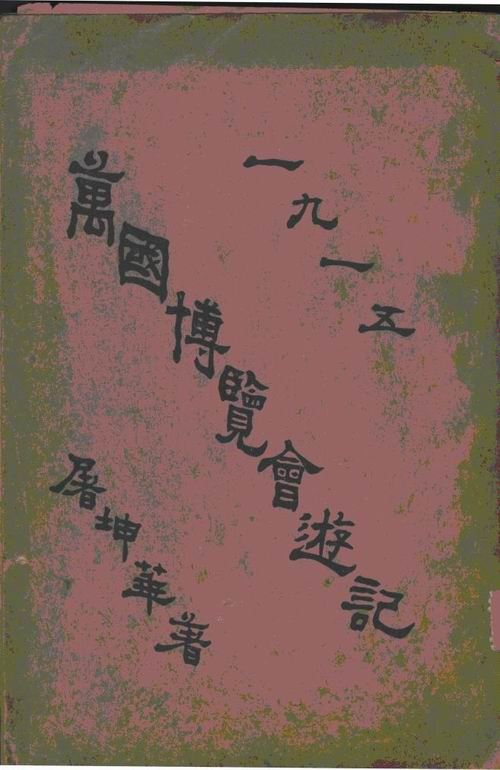 一九一五
萬國博覽會遊記
屠坤華著